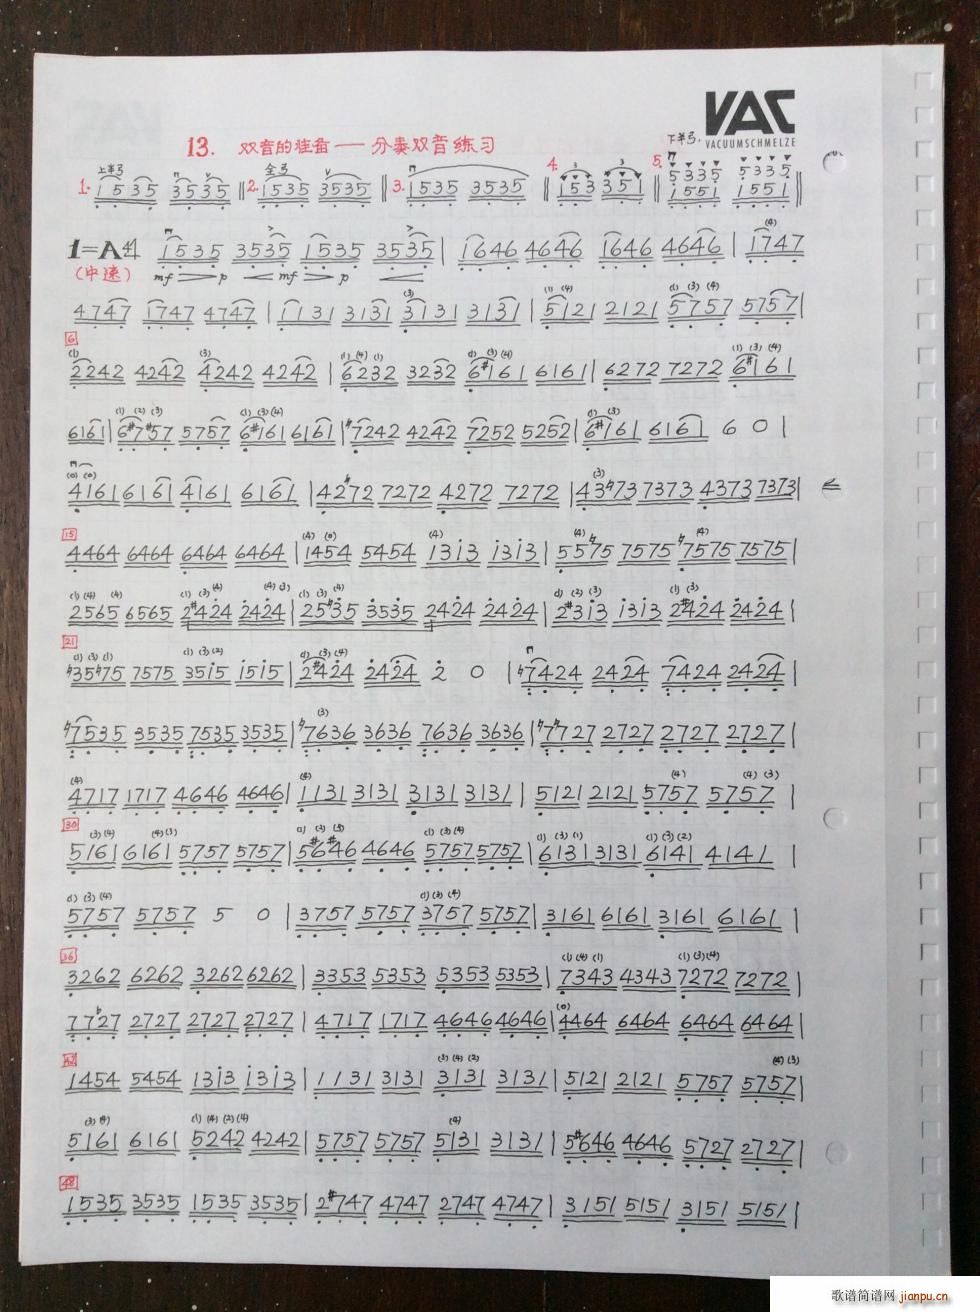 VAC
VACUUMSCHMELZE
13. 双音的准备——分奏双音练习
下半弓.
上半弓
全弓
1. 1535 3535 2. 1535 3535 3. 1535 3535 4. 153 351 5. 5335 5335
1551 1551
1=A 4/4 1535 3535 1535 3535 | 1646 4646 1646 4646 | 1747
(中速) mf p mf p
4747 1747 4747 | 1131 3131 3131 3131 | 5121 2121 5757 5757 |
6
2242 4242 4242 4242 | 6232 3232 6#161 6161 | 6272 7272 6#161
6161 | 6#7#57 5757 6#161 6161 | ♮7242 4242 7252 5252 | 6#161 6161 6 0 |
4161 6161 4161 6161 | 42♮72 7272 4272 7272 | 43♮73 7373 4373 7373 |
15
4464 6464 6464 6464 | 1454 5454 1313 1313 | 5575 7575 ♮7575 7575 |
2565 6565 2#424 2424 | 25♮35 3535 2424 2424 | 2#313 1313 2#424 2424 |
21
♮35♮75 7575 3515 1515 | 2#424 2424 2 0 | ♮7424 2424 7424 2424 |
♮7535 3535 7535 3535 | ♮7636 3636 7636 3636 | ♮7♮727 2727 2727 2727 |
4717 1717 4646 4646 | 1131 3131 3131 3131 | 5121 2121 5757 5757 |
30
5161 6161 5757 5757 | 5#6#46 4646 5757 5757 | 6131 3131 6141 4141 |
5757 5757 5 0 | 3757 5757 3757 5757 | 3161 6161 3161 6161 |
36
3262 6262 3262 6262 | 3353 5353 5353 5353 | 7343 4343 7272 7272 |
77♭27 2727 2727 2727 | 4717 1717 4646 4646 | 4464 6464 6464 6464 |
42
1454 5454 1313 1313 | 1131 3131 3131 3131 | 5121 2121 5757 5757 |
5161 6161 5242 4242 | 5757 5757 5131 3131 | 5#646 4646 5727 2727 |
48
1535 3535 1535 3535 | 2#747 4747 2747 4747 | 3151 5151 3151 5151 |
歌谱简谱网 jianpu.cn